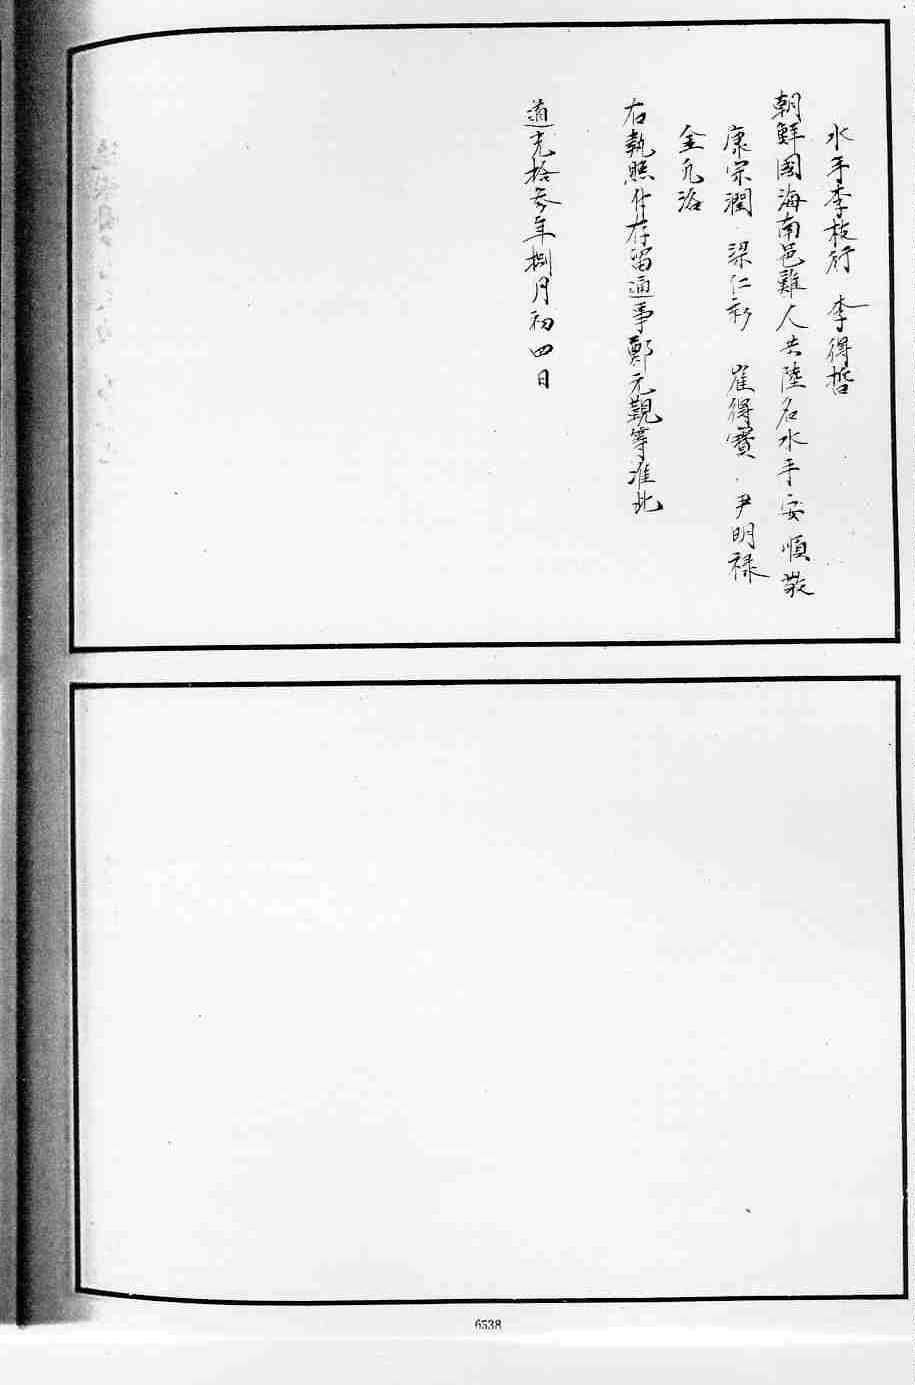 水手李枝行 李得哲
朝鮮國海南邑難人共陸名水手安順敬
康宗潤 梁仁衫 崔得寶 尹明禄
金允洛
右執照付存留通事鄭元觀等准此
道光拾參年捌月初四日
6538